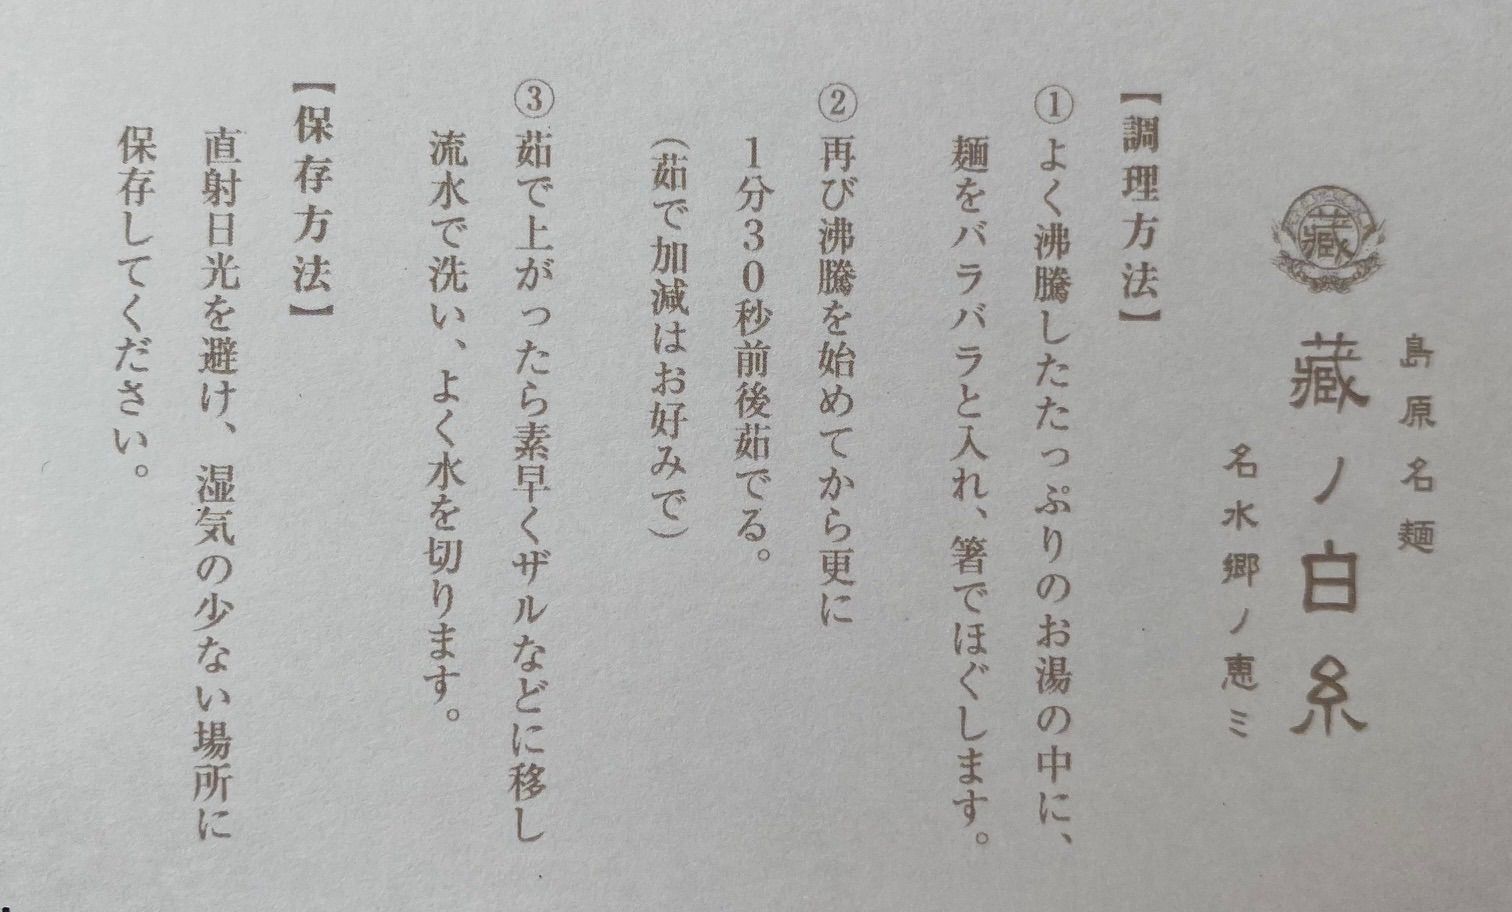 島原名麺
藏
藏ノ白糸
名水郷ノ恵ミ
【調理方法】
①よく沸騰したたっぷりのお湯の中に、
麺をバラバラと入れ、箸でほぐします。
②再び沸騰を始めてから更に
1分30秒前後茹でる。
(茹で加減はお好みで)
③茹で上がったら素早くザルなどに移し
流水で洗い、よく水を切ります。
【保存方法】
直射日光を避け、湿気の少ない場所に
保存してください。